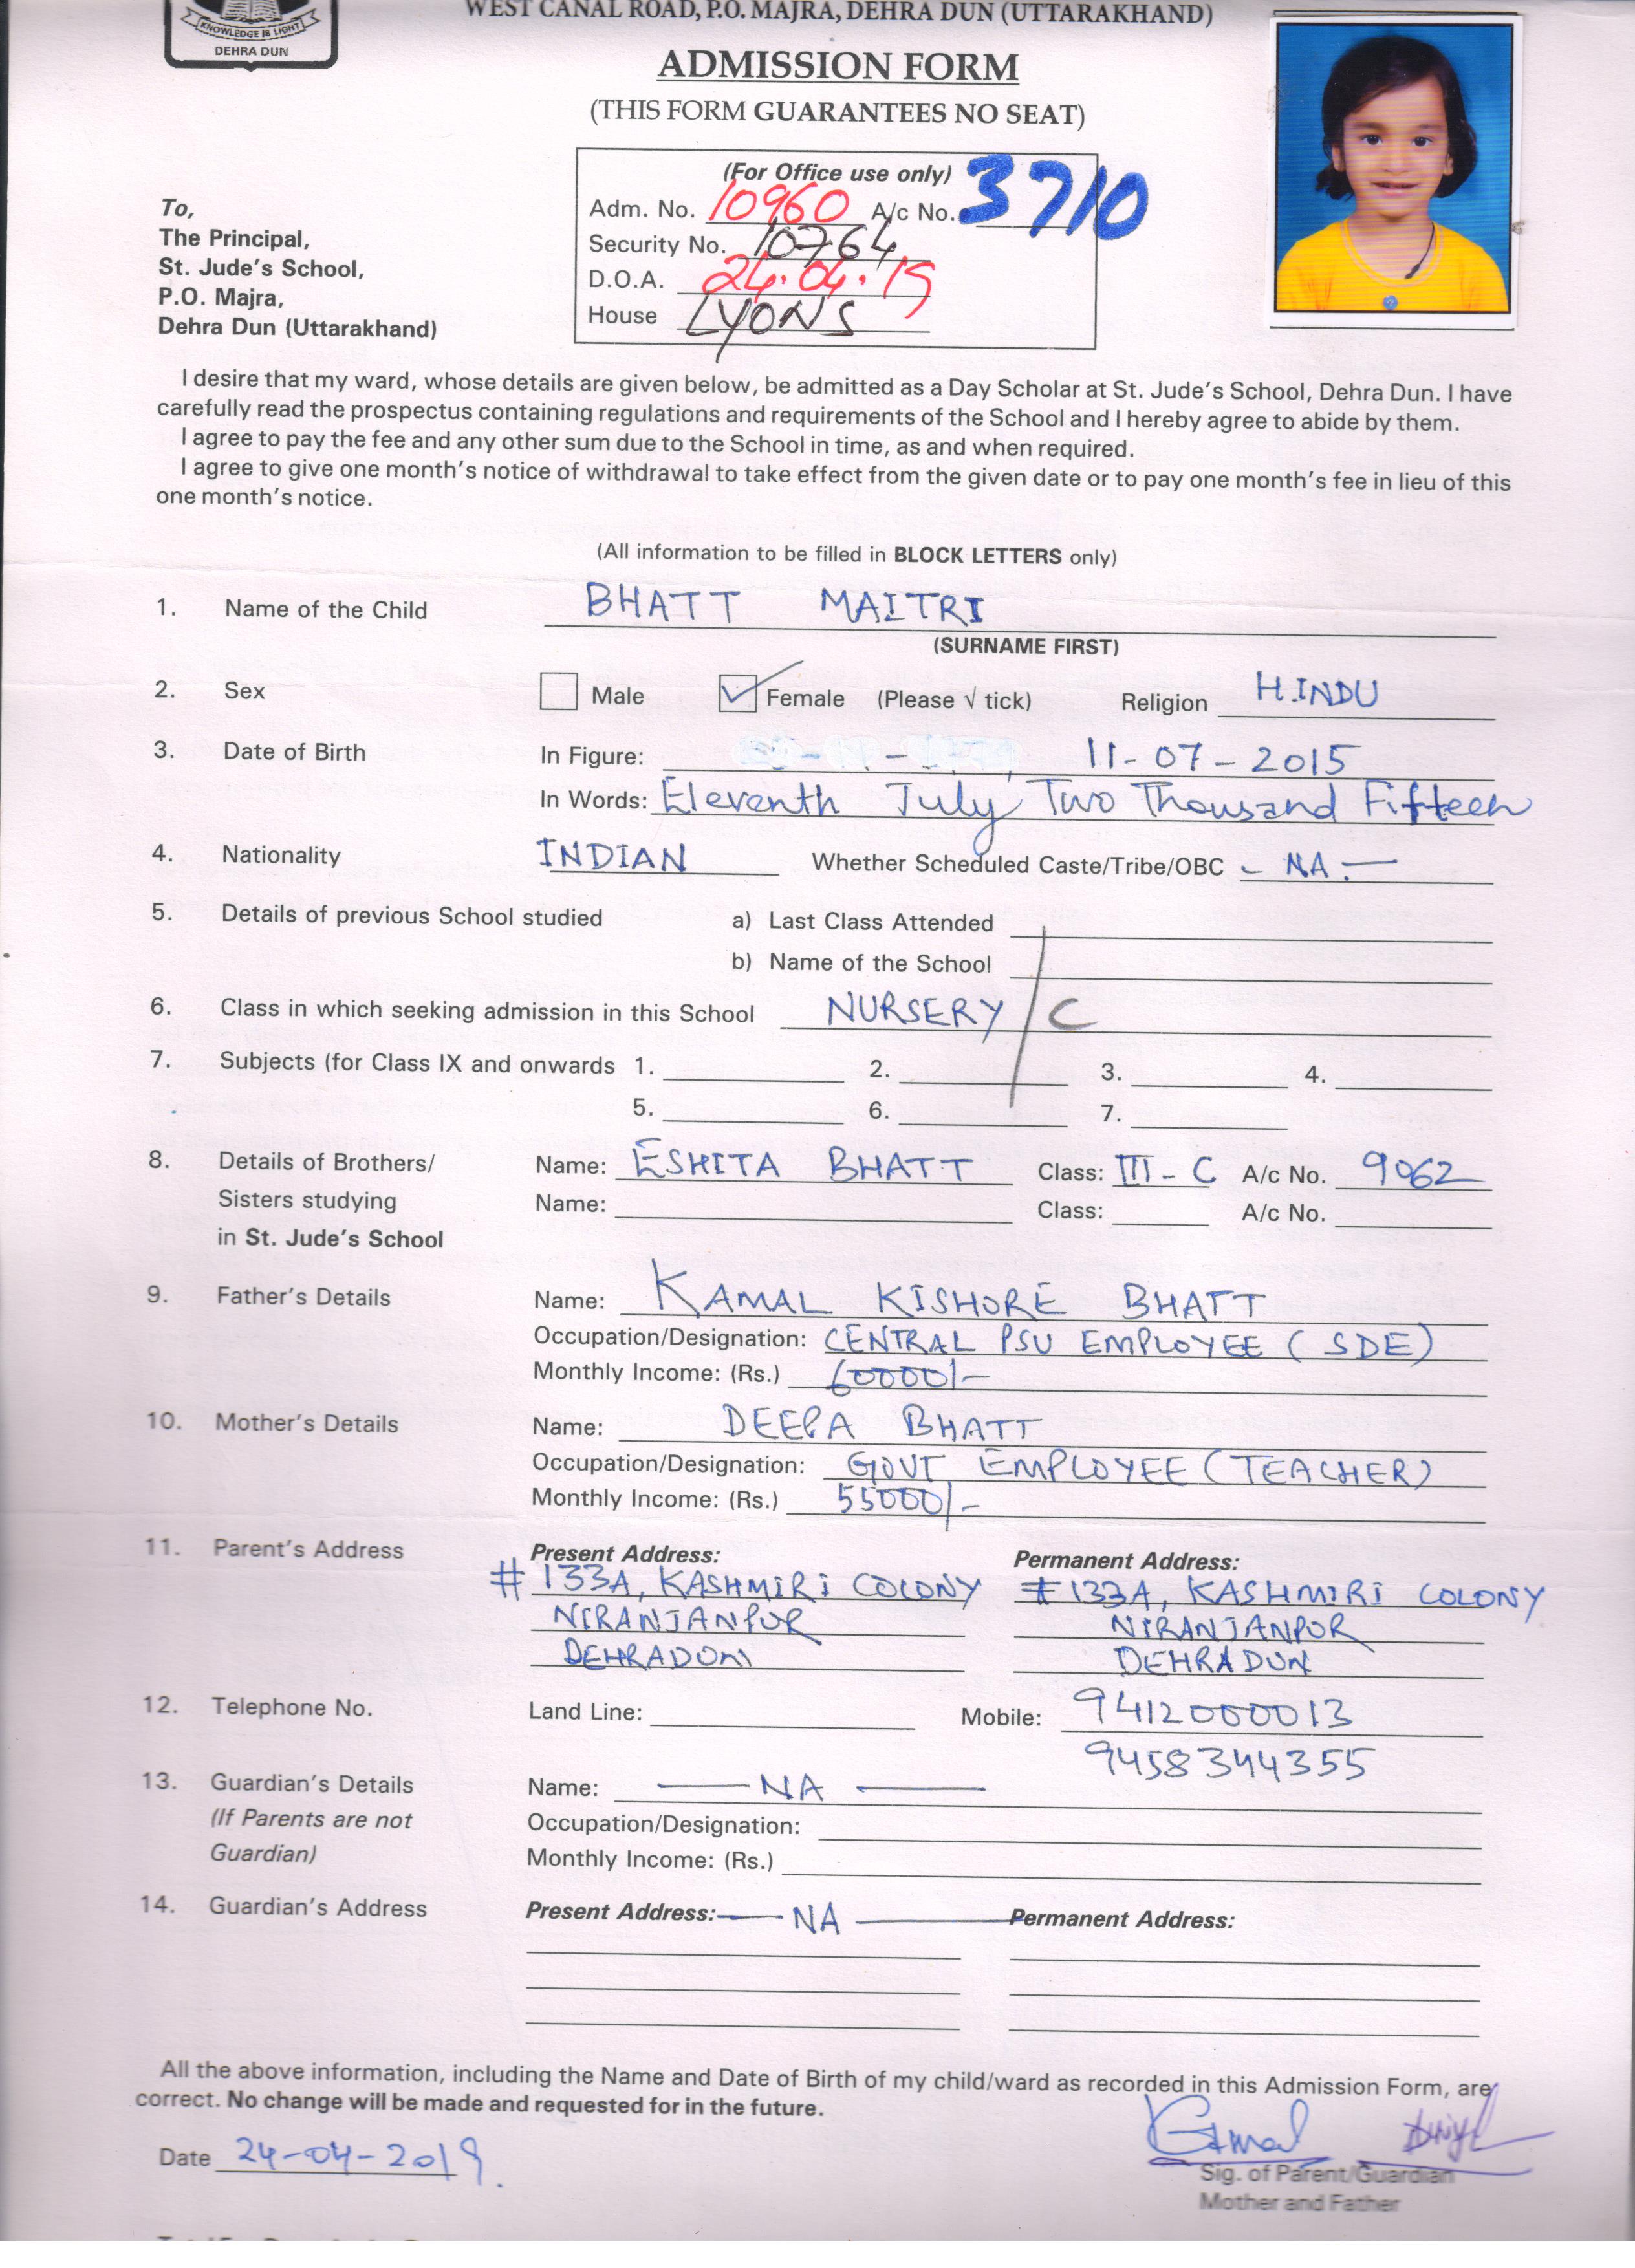 KNOWLEDGE IS LIGHT
DEHRA DUN
WEST CANAL ROAD, P.O. MAJRA, DEHRA DUN (UTTARAKHAND)
ADMISSION FORM
(THIS FORM GUARANTEES NO SEAT)
(For Office use only)
Adm. No. 10960 A/c No. 3710
Security No. 10764
D.O.A. 24.04.19
House LYONS
To,
The Principal,
St. Jude's School,
P.O. Majra,
Dehra Dun (Uttarakhand)
I desire that my ward, whose details are given below, be admitted as a Day Scholar at St. Jude's School, Dehra Dun. I have
carefully read the prospectus containing regulations and requirements of the School and I hereby agree to abide by them.
I agree to pay the fee and any other sum due to the School in time, as and when required.
I agree to give one month's notice of withdrawal to take effect from the given date or to pay one month's fee in lieu of this
one month's notice.
(All information to be filled in BLOCK LETTERS only)
1. Name of the Child BHATT MAITRI
(SURNAME FIRST)
2. Sex Male ✓ Female (Please √ tick) Religion HINDU
3. Date of Birth In Figure: 11-07-2015
In Words: Eleventh July Two Thousand Fifteen
4. Nationality INDIAN Whether Scheduled Caste/Tribe/OBC - NA. -
5. Details of previous School studied a) Last Class Attended
b) Name of the School
6. Class in which seeking admission in this School NURSERY / C
7. Subjects (for Class IX and onwards 1. 2. 3. 4.
5. 6. 7.
8. Details of Brothers/ Name: ESHITA BHATT Class: III - C A/c No. 9062
Sisters studying Name: Class: A/c No.
in St. Jude's School
9. Father's Details Name: KAMAL KISHORE BHATT
Occupation/Designation: CENTRAL PSU EMPLOYEE (SDE)
Monthly Income: (Rs.) 60000/-
10. Mother's Details Name: DEEPA BHATT
Occupation/Designation: GOVT EMPLOYEE (TEACHER)
Monthly Income: (Rs.) 55000/-
11. Parent's Address Present Address: Permanent Address:
# 133A, KASHMIRI COLONY # 133A, KASHMIRI COLONY
NIRANJANPUR NIRANJANPUR
DEHRADUN DEHRADUN
12. Telephone No. Land Line: Mobile: 9412000013
9458344355
13. Guardian's Details Name: — NA —
(If Parents are not Occupation/Designation:
Guardian) Monthly Income: (Rs.)
14. Guardian's Address Present Address: — NA — Permanent Address:
All the above information, including the Name and Date of Birth of my child/ward as recorded in this Admission Form, are
correct. No change will be made and requested for in the future.
Kamal
Date 24-04-2019.
Sig. of Parent/Guardian
Mother and Father